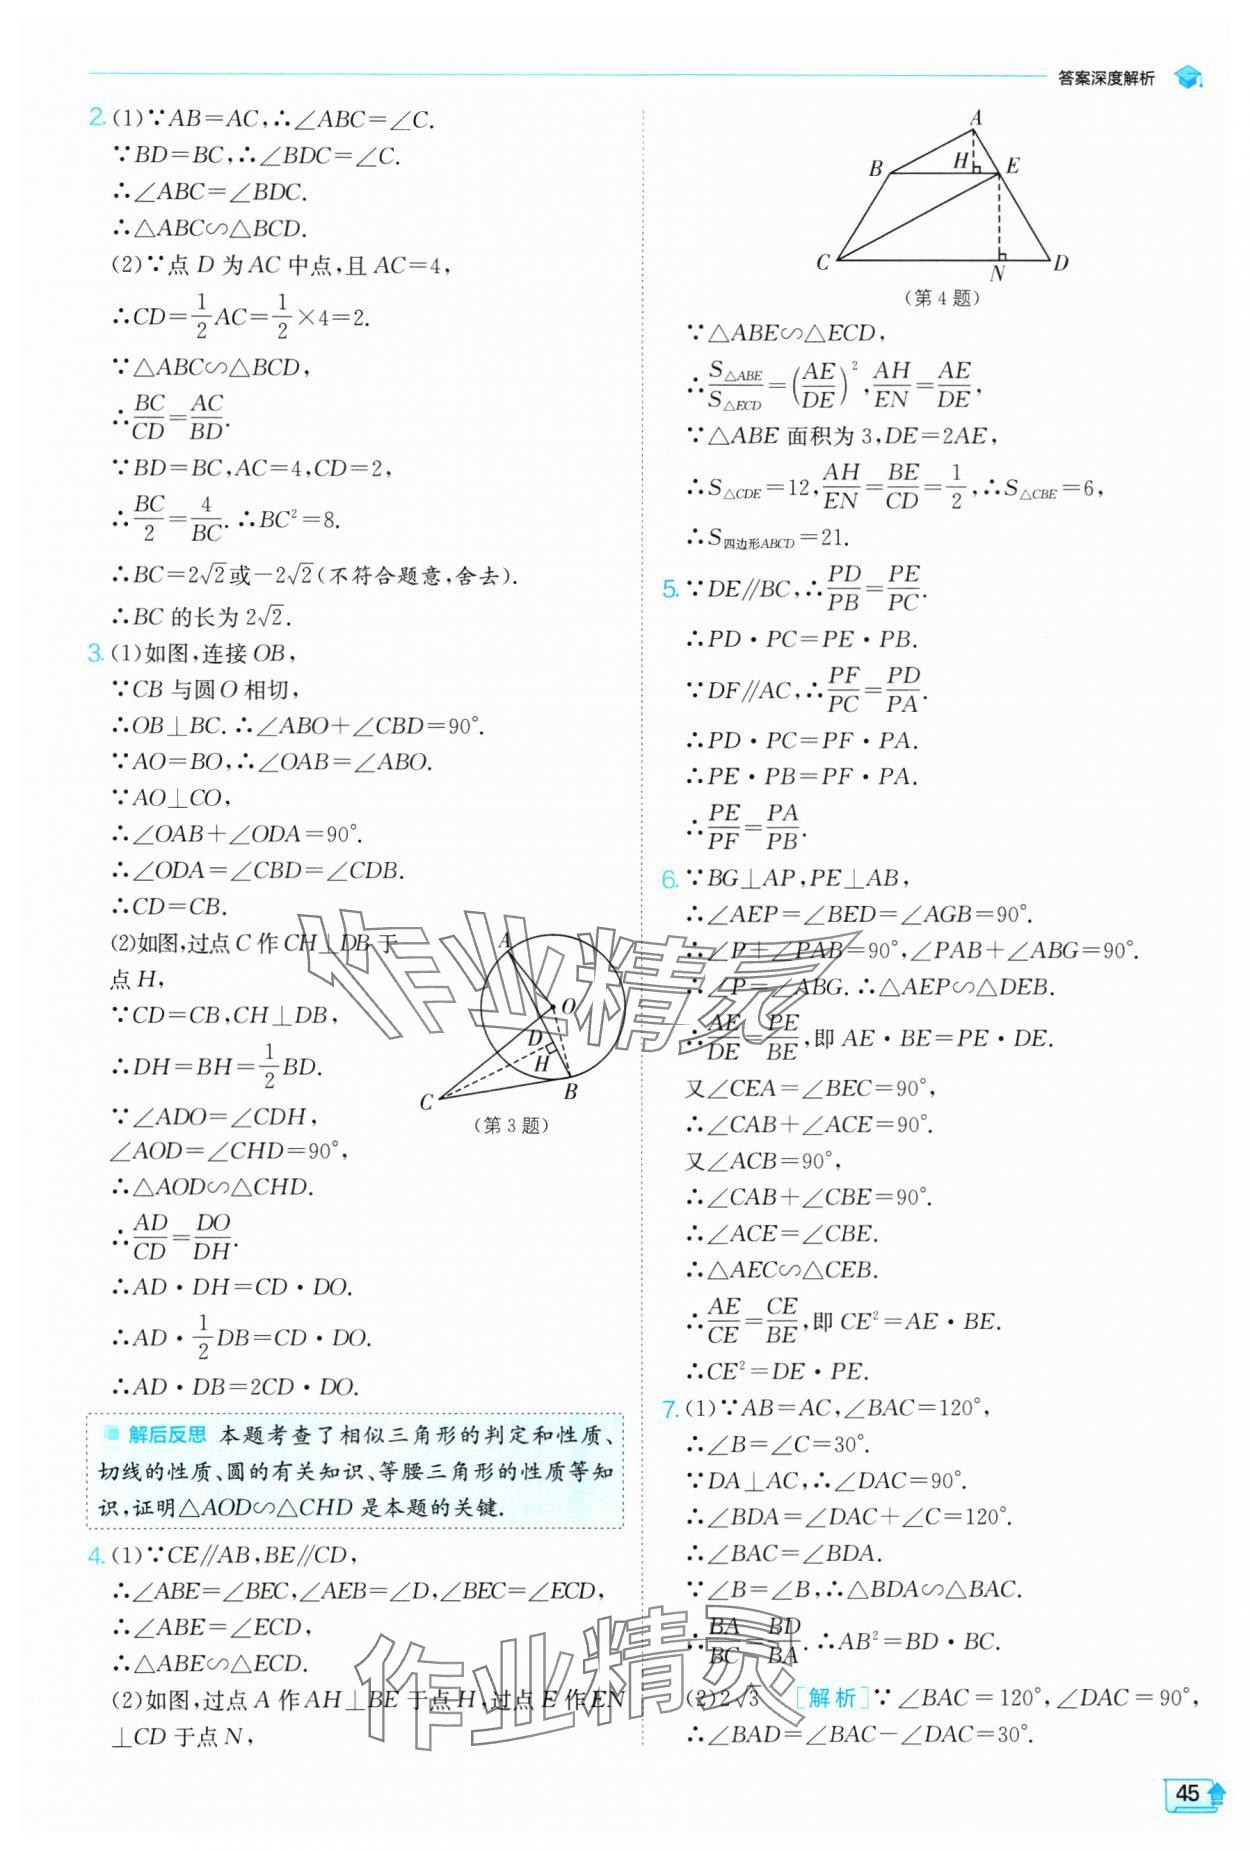 答案深度解析
2. (1)∵AB=AC,∴∠ABC=∠C.
∵BD=BC,∴∠BDC=∠C.
∴∠ABC=∠BDC.
∴△ABC∽△BCD.
(2)∵点 D 为 AC 中点,且 AC=4,
∴CD=1/2 AC=1/2×4=2.
∵△ABC∽△BCD,
∴BC/CD=AC/BD.
∵BD=BC,AC=4,CD=2,
∴BC/2=4/BC. ∴BC²=8.
∴BC=2√2或-2√2(不符合题意,舍去).
∴BC 的长为 2√2.
3. (1)如图,连接 OB,
∵CB 与圆 O 相切,
∴OB⊥BC. ∴∠ABO+∠CBD=90°.
∵AO=BO,∴∠OAB=∠ABO.
∵AO⊥CO,
∴∠OAB+∠ODA=90°.
∴∠ODA=∠CBD=∠CDB.
∴CD=CB.
(2)如图,过点 C 作 CH⊥DB 于
点 H,
∵CD=CB,CH⊥DB,
∴DH=BH=1/2 BD.
∵∠ADO=∠CDH,
∠AOD=∠CHD=90°,
∴△AOD∽△CHD.
∴AD/CD=DO/DH.
∴AD·DH=CD·DO.
∴AD·1/2 DB=CD·DO.
∴AD·DB=2CD·DO.
A
O
D
H
B
C
(第 3 题)
解后反思 本题考查了相似三角形的判定和性质、
切线的性质、圆的有关知识、等腰三角形的性质等知
识,证明△AOD∽△CHD 是本题的关键.
4. (1)∵CE∥AB,BE∥CD,
∴∠ABE=∠BEC,∠AEB=∠D,∠BEC=∠ECD,
∴∠ABE=∠ECD,
∴△ABE∽△ECD.
(2)如图,过点 A 作 AH⊥BE 于点 H,过点 E 作 EN
⊥CD 于点 N,
A
B
H
E
C
N
D
(第 4 题)
∵△ABE∽△ECD,
∴S△ABE/S△ECD=(AE/DE)²,AH/EN=AE/DE,
∵△ABE 面积为 3,DE=2AE,
∴S△CDE=12,AH/EN=BE/CD=1/2,∴S△CBE=6,
∴S四边形ABCD=21.
5. ∵DE∥BC,∴PD/PB=PE/PC.
∴PD·PC=PE·PB.
∵DF∥AC,∴PF/PC=PD/PA.
∴PD·PC=PF·PA.
∴PE·PB=PF·PA.
∴PE/PF=PA/PB.
6. ∵BG⊥AP,PE⊥AB,
∴∠AEP=∠BED=∠AGB=90°.
∴∠P+∠PAB=90°,∠PAB+∠ABG=90°.
∴∠P=∠ABG. ∴△AEP∽△DEB.
∴AE/DE=PE/BE,即 AE·BE=PE·DE.
又∠CEA=∠BEC=90°,
∴∠CAB+∠ACE=90°.
又∠ACB=90°,
∴∠CAB+∠CBE=90°.
∴∠ACE=∠CBE.
∴△AEC∽△CEB.
∴AE/CE=CE/BE,即 CE²=AE·BE.
∴CE²=DE·PE.
7. (1)∵AB=AC,∠BAC=120°,
∴∠B=∠C=30°.
∵DA⊥AC,∴∠DAC=90°.
∴∠BDA=∠DAC+∠C=120°.
∴∠BAC=∠BDA.
∵∠B=∠B,∴△BDA∽△BAC.
∴BA/BC=BD/BA. ∴AB²=BD·BC.
(2)2√3 [解析]∵∠BAC=120°,∠DAC=90°,
∴∠BAD=∠BAC-∠DAC=30°.
作业精灵
作业精灵
45